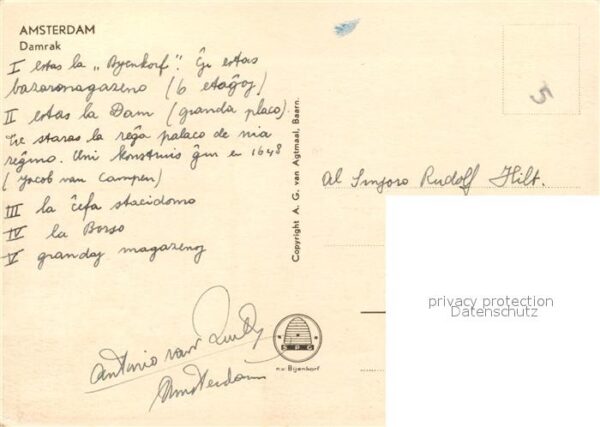 AMSTERDAM
Damrak
I estas la „Bijenkorf". Ĝi estas
bazaromagazeno (6 etaĝoj)
II estas la Dam (granda placo).
Tie staras la reĝa palaco de nia
reĝino. Oni konstruis ĝin en 1648
(Jacob van Campen)
III la ĉefa stacidomo
IV la Borso
V grandaj magazenoj
Antonio van
Amsterdam
Copyright A. G. van Agtmaal, Baarn.
S P G
n.v. Bijenkorf
5
Al Sinjoro Rudolf Hilt.
privacy protection
Datenschutz